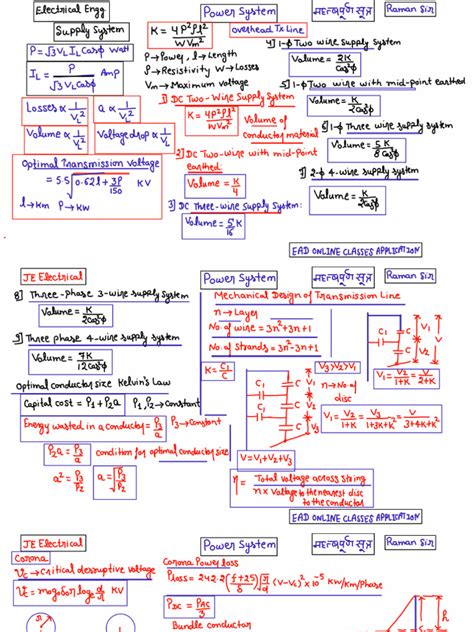 Electrical Engg
Power System
महत्वपूर्ण सूत्र
Raman Sir
Supply System
P = √3 V_L I_L Cosφ Watt
I_L = P / √3 V_L Cosφ Amp
Losses ∝ 1/V_L²
a ∝ 1/V_L²
Volume ∝ 1/V_L²
Voltage drop ∝ 1/V_L
Optimal Transmission Voltage
= 5.5 √(0.62l + 3P/150) KV
l → Km P → KW
K = 4P²ρl² / W V_m²
overhead Tx Line
P → Power, l → Length
ρ → Resistivity W → Losses
V_m → Maximum voltage
1] DC Two-Wire Supply System
K = 4P²ρl² / W V_m²
Volume of conductor material
2] DC Two-wire with mid-point earthed:
Volume = K/4
3] DC Three-wire Supply System:
Volume = 5K/16
4] 1-φ Two wire supply system
Volume = 2K / Cos²φ
5] 1-φ Two wire with mid-point earthed
Volume = K / 2Cos²φ
6] 1-φ Three wire supply system
Volume = 5K / 8Cos²φ
7] 2-φ 4-wire supply system
Volume = K / 2Cos²φ
EAD ONLINE CLASSES APPLICATION
JE Electrical
Power System
महत्वपूर्ण सूत्र
Raman Sir
8] Three-phase 3-wire supply System
Volume = K / 2Cos²φ
9] Three phase 4-wire supply system
Volume = 7K / 12Cos²φ
Optimal conductor size Kelvin's Law
Capital cost = P₁ + P₂a
P₁, P₂ → Constant
Energy wasted in a conductor = P₃/a
P₃ → Constant
P₂a = P₃/a
condition for optimal conductor size
a² = P₃/P₂
a = √(P₃/P₂)
Mechanical Design of Transmission Line
n → Layer
No. of wire = 3n² + 3n + 1
No. of Strands = 3n² - 3n + 1
K = C₁/C
V₃ > V₂ > V₁
n → No of disc
C₁
C
V₁
V₂
V₃
V = V₁ + V₂ + V₃
V₁ = V₂/1+K = V/2+K
V₁ = V₂/1+K = V₃/1+3K+K² = V/3+4K+K²
η = Total voltage across string / n × Voltage to the nearest disc to the conductor
EAD ONLINE CLASSES APPLICATION
JE Electrical
Power System
महत्वपूर्ण सूत्र
Raman Sir
Corona
V_c → Critical desruptive voltage
V_c = m₀g₀δr log d/r KV
Corona Power loss
P_Loss = 242.2 (f+25/δ) √(r/d) (V-V_c)² × 10⁻⁵ KW/Km/Phase
P_DC = P_AC / 3
Bundle conductor
r
h